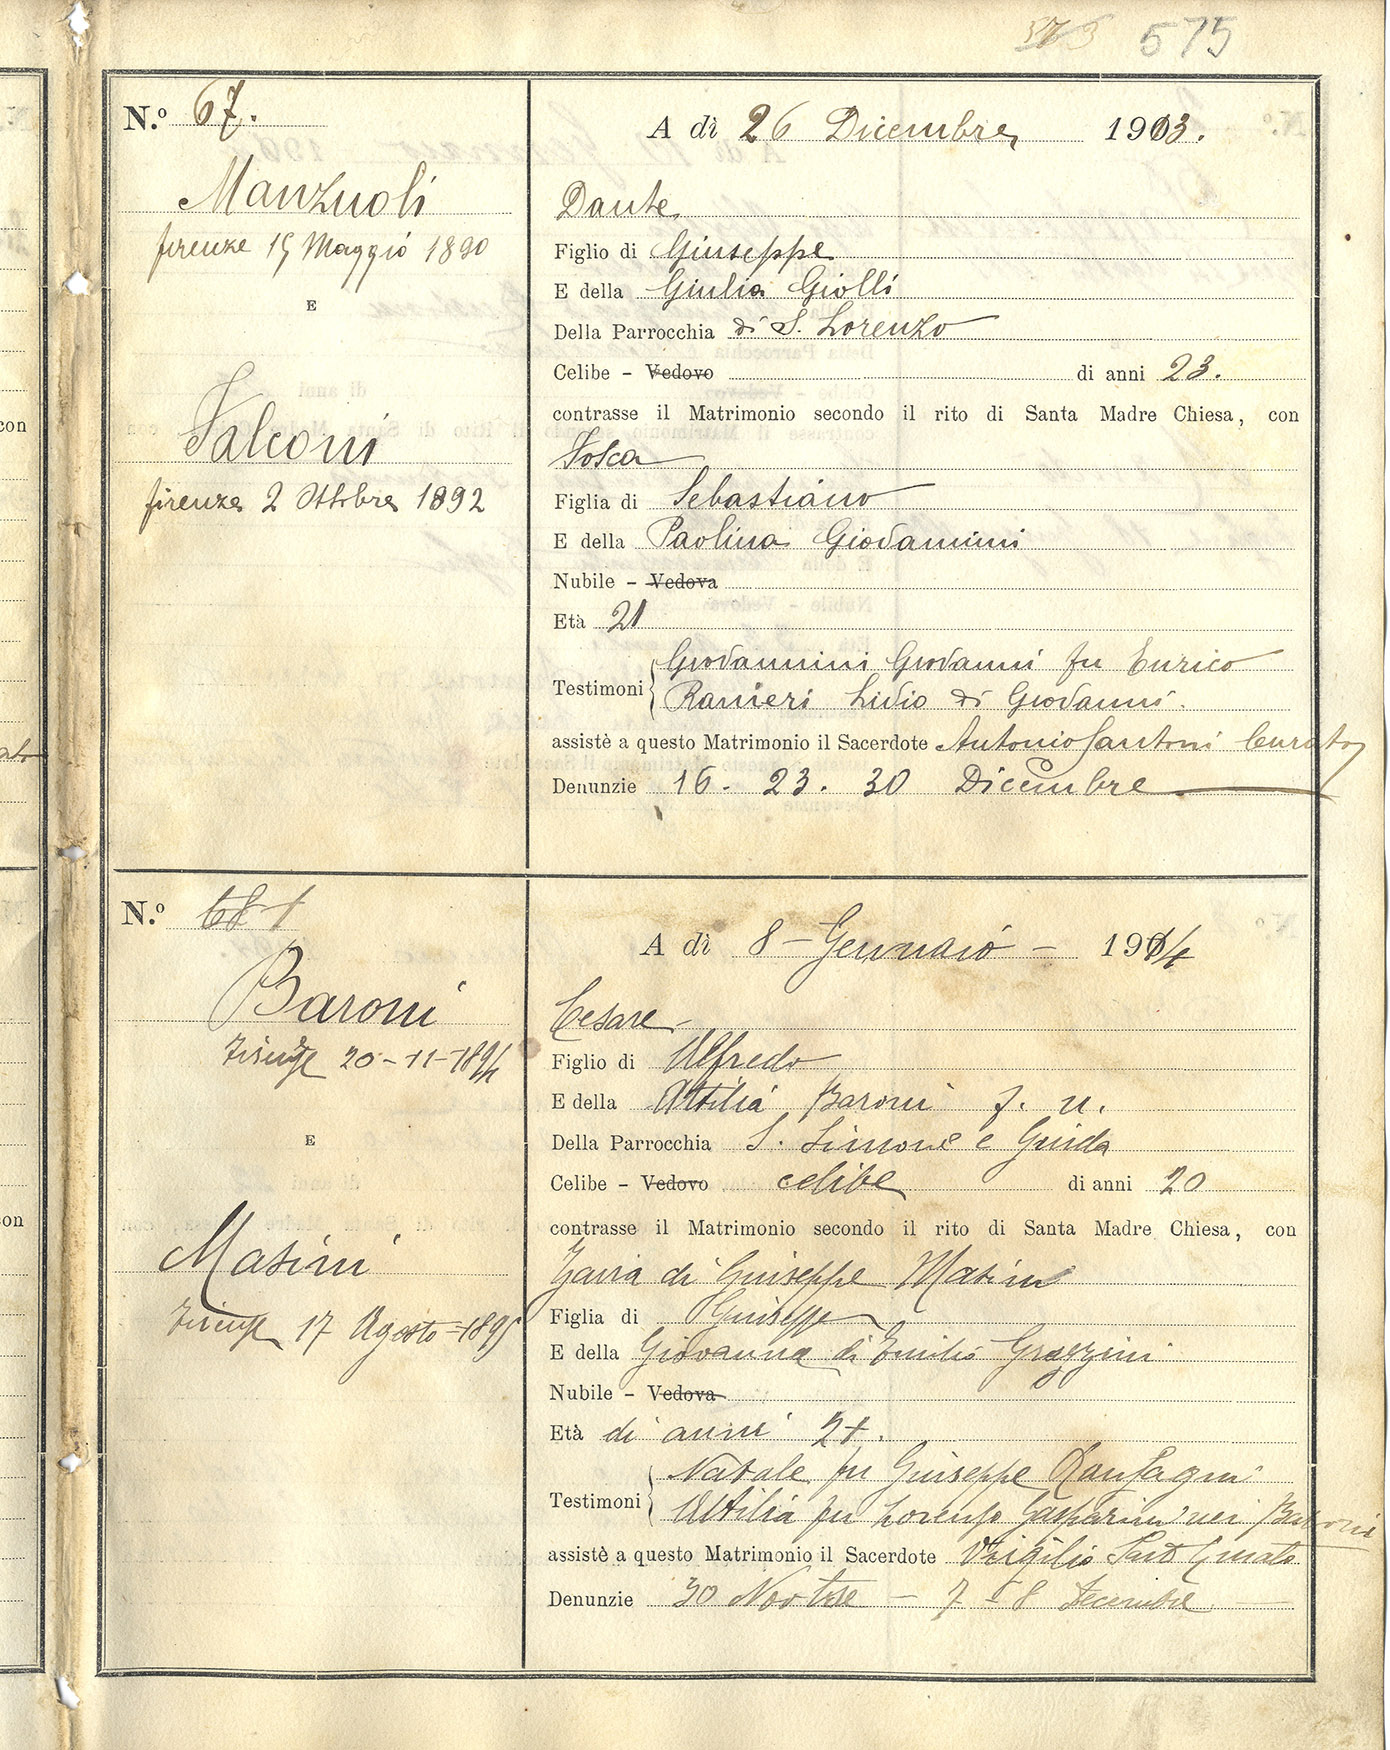 575
N.º 67.
Manzuoli
firenze 15 Maggio 1890
E
Falconi
firenze 2 Ottobre 1892
A dì 26 Dicembre 1913.
Dante
Figlio di Giuseppe
E della Giulia Giolli
Della Parrocchia di S. Lorenzo
Celibe - Vedovo di anni 23.
contrasse il Matrimonio secondo il rito di Santa Madre Chiesa, con
Tosca
Figlia di Sebastiano
E della Paolina Giovannini
Nubile - Vedova
Età 21
Giovannini Giovanni fu Enrico
Testimoni
Ranieri Livio di Giovanni.
assistè a questo Matrimonio il Sacerdote Antonio Santoni Curato
Denunzie 16. 23. 30 Dicembre
N.º 68
Baroni
Firenze 20-11-1894
E
Masini
Firenze 17 Agosto
A dì 8 - Gennaio - 1914
Cesare
Figlio di Alfredo
E della Attilia Baroni
Della Parrocchia S. Simone e Giuda
Celibe - Vedovo celibe di anni 20
contrasse il Matrimonio secondo il rito di Santa Madre Chiesa, con
di Giuseppe Masini
Figlia di Giuseppe
E della Giovanna di Emilio Grazzini
Nubile - Vedova
Età di anni 21.
Natale fu Giuseppe
Testimoni
Attilia fu Lorenzo Gasparini nei Baroni
assistè a questo Matrimonio il Sacerdote Virgilio Curato
Denunzie 30 Novbre - 7 - 8 Decembre